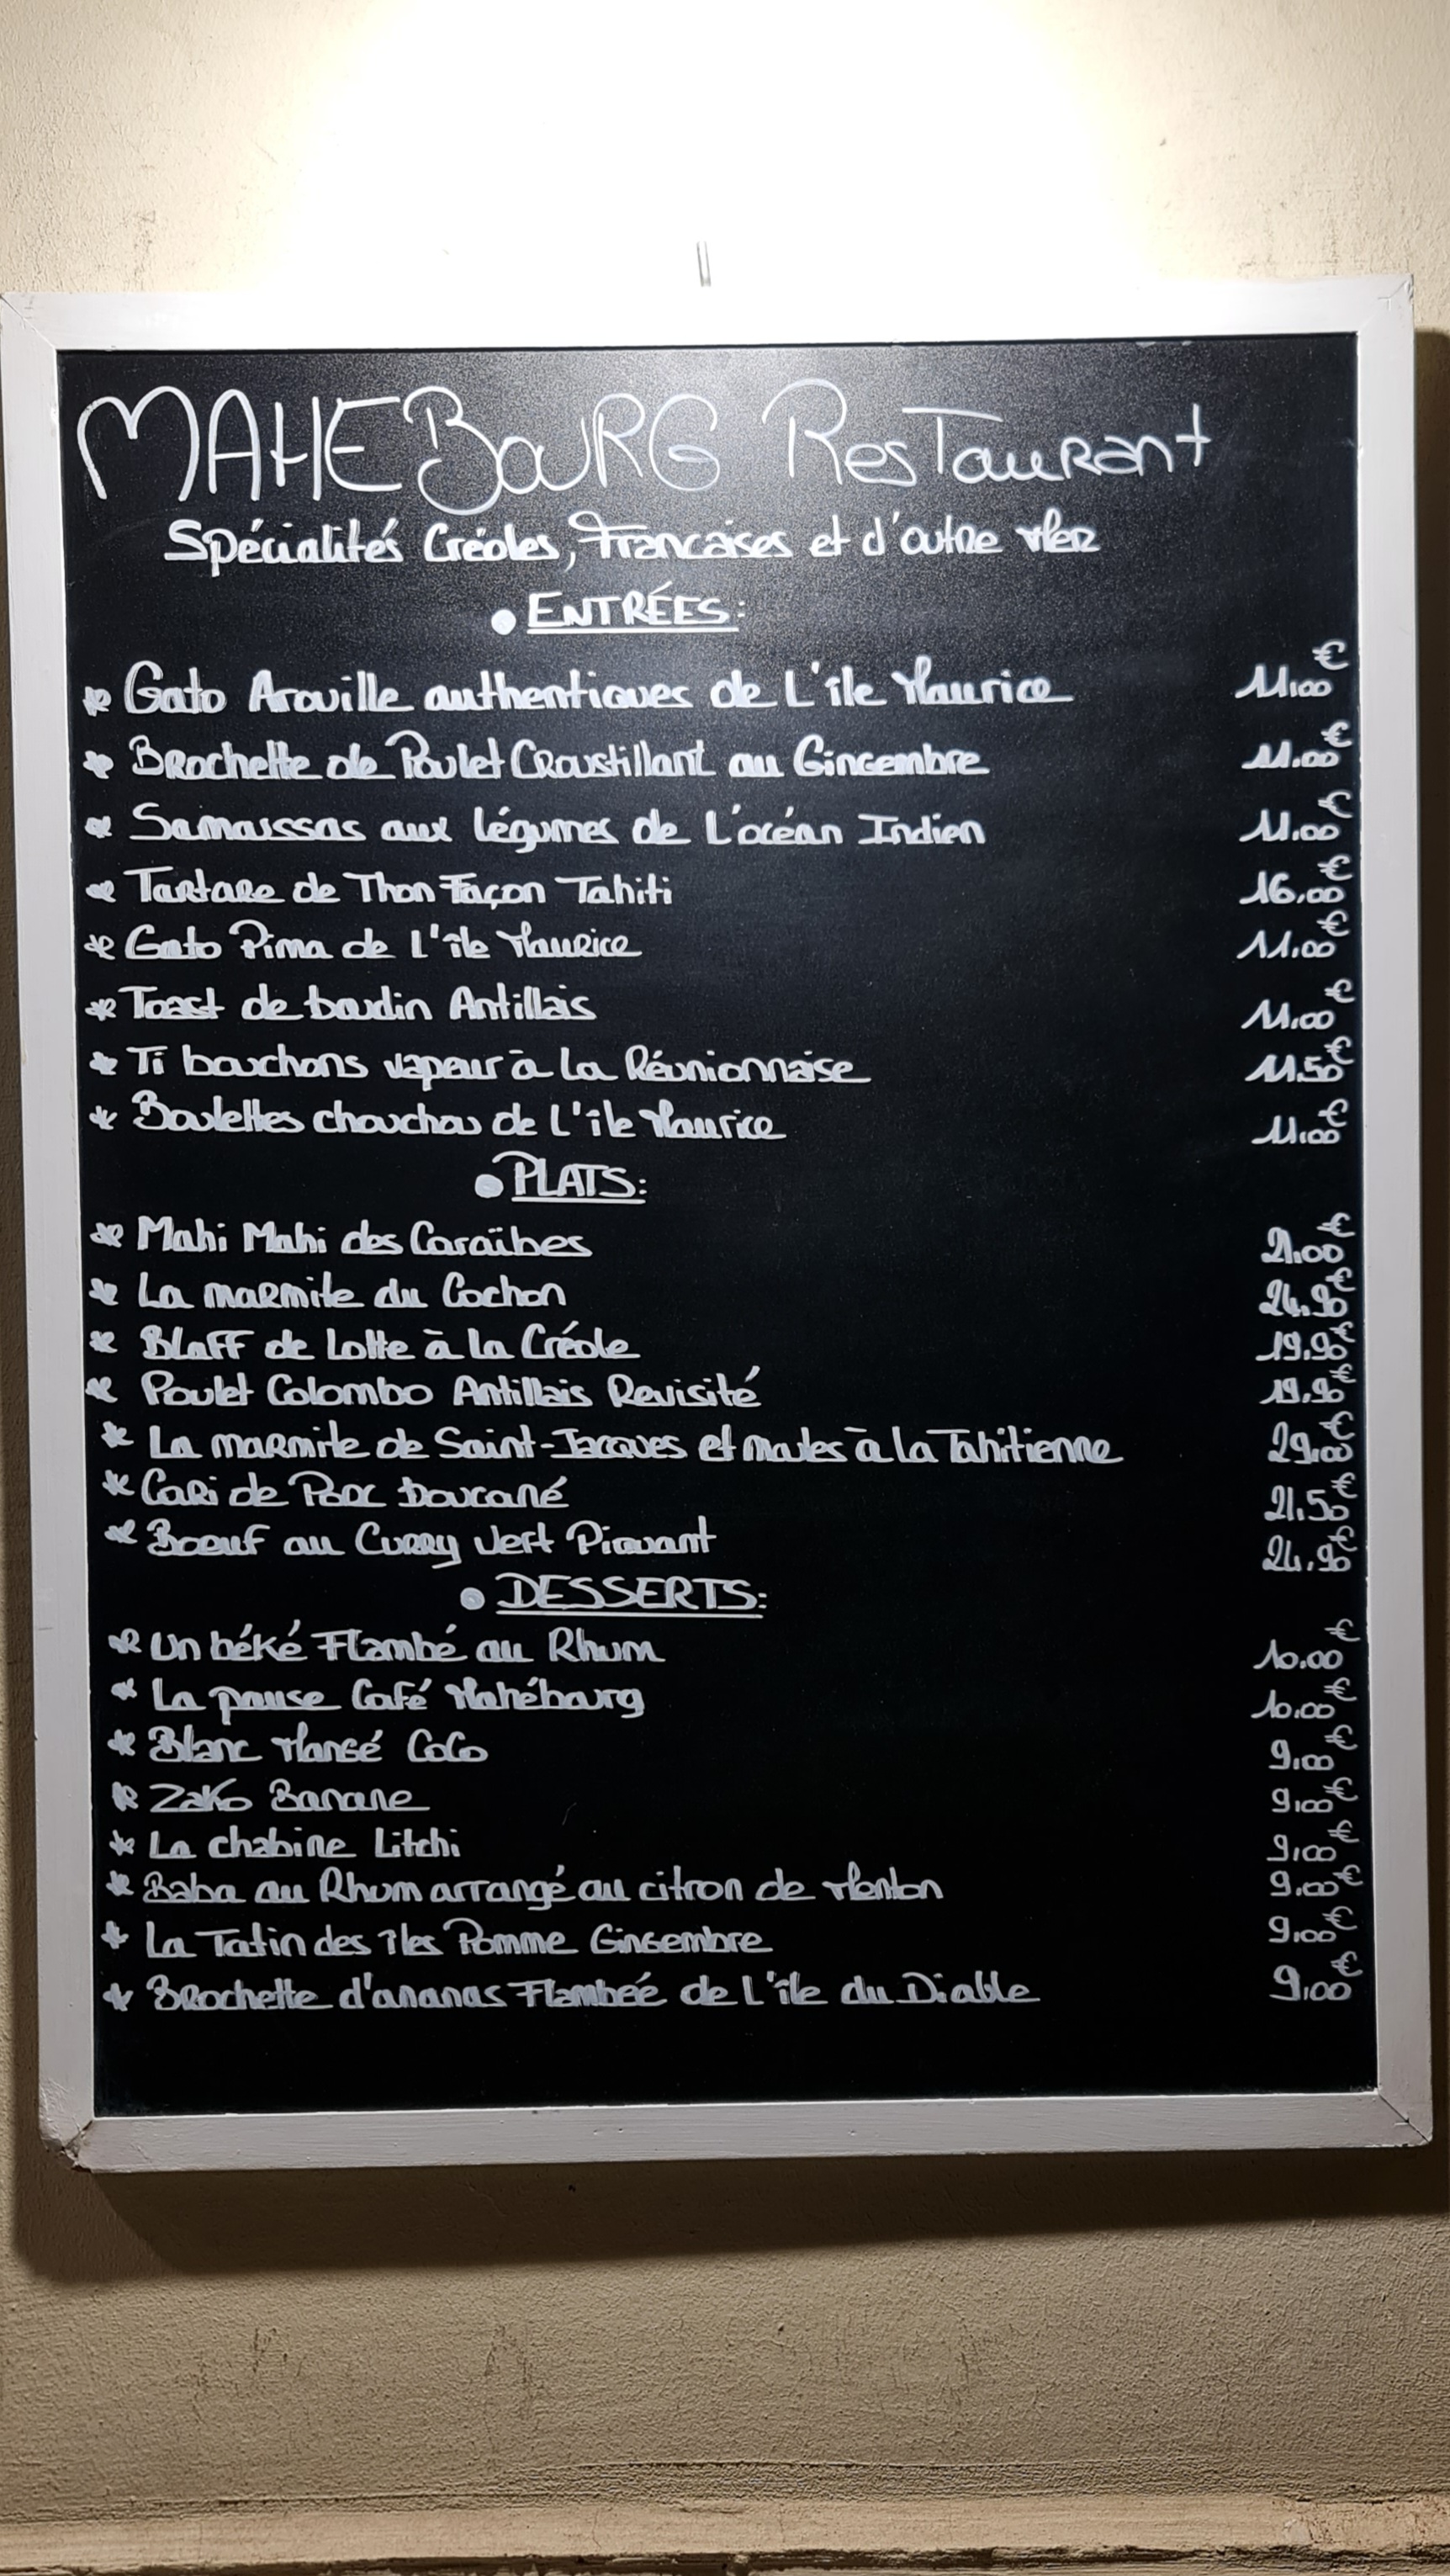 MAHEBOURG Restaurant
Spécialités Créoles, Francaises et d'outre Mer
• ENTRÉES:
* Gato Arouille authentiques de L'île Maurice 11.00€
* Brochette de Poulet Croustillant au Gingembre 11.00€
* Samoussas aux légumes de L'océan Indien 11.00€
* Tartare de Thon Façon Tahiti 16.00€
* Gato Pima de L'île Maurice 11.00€
* Toast de boudin Antillais 11.00€
* Ti bouchons vapeur à La Réunionnaise 11.50€
* Boulettes chouchou de L'île Maurice 11.00€
• PLATS:
* Mahi Mahi des Caraïbes 21.00€
* La marmite du Cochon 24.90€
* Blaff de Lotte à la Créole 19.90€
* Poulet Colombo Antillais Revisité 19.90€
* La marmite de Saint-Jacques et moules à la Tahitienne 29.00€
* Cari de Porc boucané 21.50€
* Boeuf au Curry Vert Piquant 24.90€
• DESSERTS:
* Un béké Flambé au Rhum 10.00€
* La pause Café Mahébourg 10.00€
* Blanc Mangé CoCo 9.00€
* Zako Banane 9.00€
* La chabine Litchi 9.00€
* Baba au Rhum arrangé au citron de Menton 9.00€
* La Tatin des îles Pomme Gingembre 9.00€
* Brochette d'ananas Flambéé de L'île du Diable 9.00€